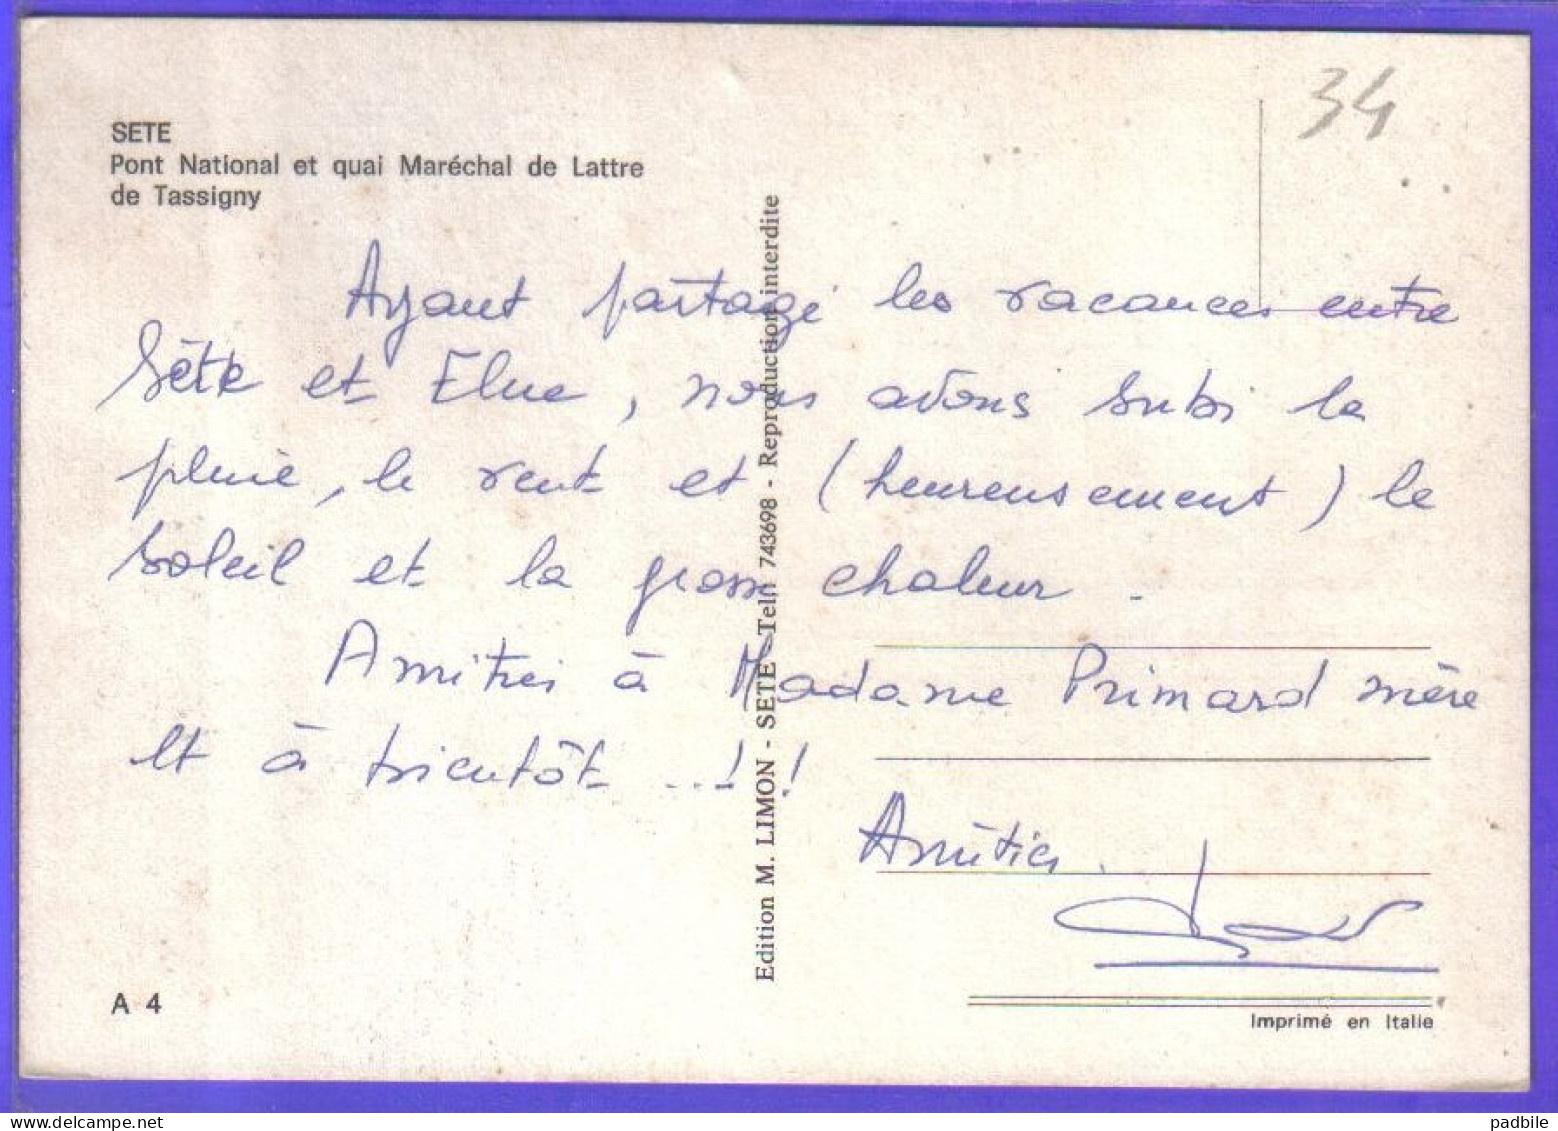 34
SETE
Pont National et quai Maréchal de Lattre
de Tassigny
Ayant partagé les vacances entre
Sète et Elne, nous avons subi la
pluie, le vent et (heureusement) le
soleil et la grosse chaleur.
Amitiés à Madame Primard mère
et à bientôt ...!!
Amitiés.
Edition M. LIMON - SETE - Tel. 743698 - Reproduction interdite
A 4
Imprimé en Italie
padbile